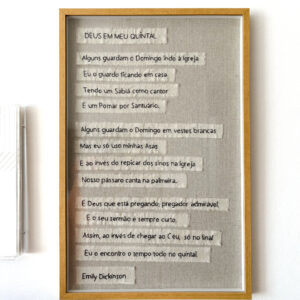 DEUS EM MEU QUINTAL
Alguns guardam o Domingo indo à Igreja
Eu o guardo ficando em casa
Tendo um Sabiá como cantor
E um Pomar por Santuário.
Alguns guardam o Domingo em vestes brancas
Mas eu só uso minhas Asas
E ao invés do repicar dos sinos na Igreja
Nosso pássaro canta na palmeira.
É Deus que está pregando, pregador admirável
E o seu sermão é sempre curto.
Assim, ao invés de chegar ao Céu, só no final
Eu o encontro o tempo todo no quintal.
Emily Dickinson